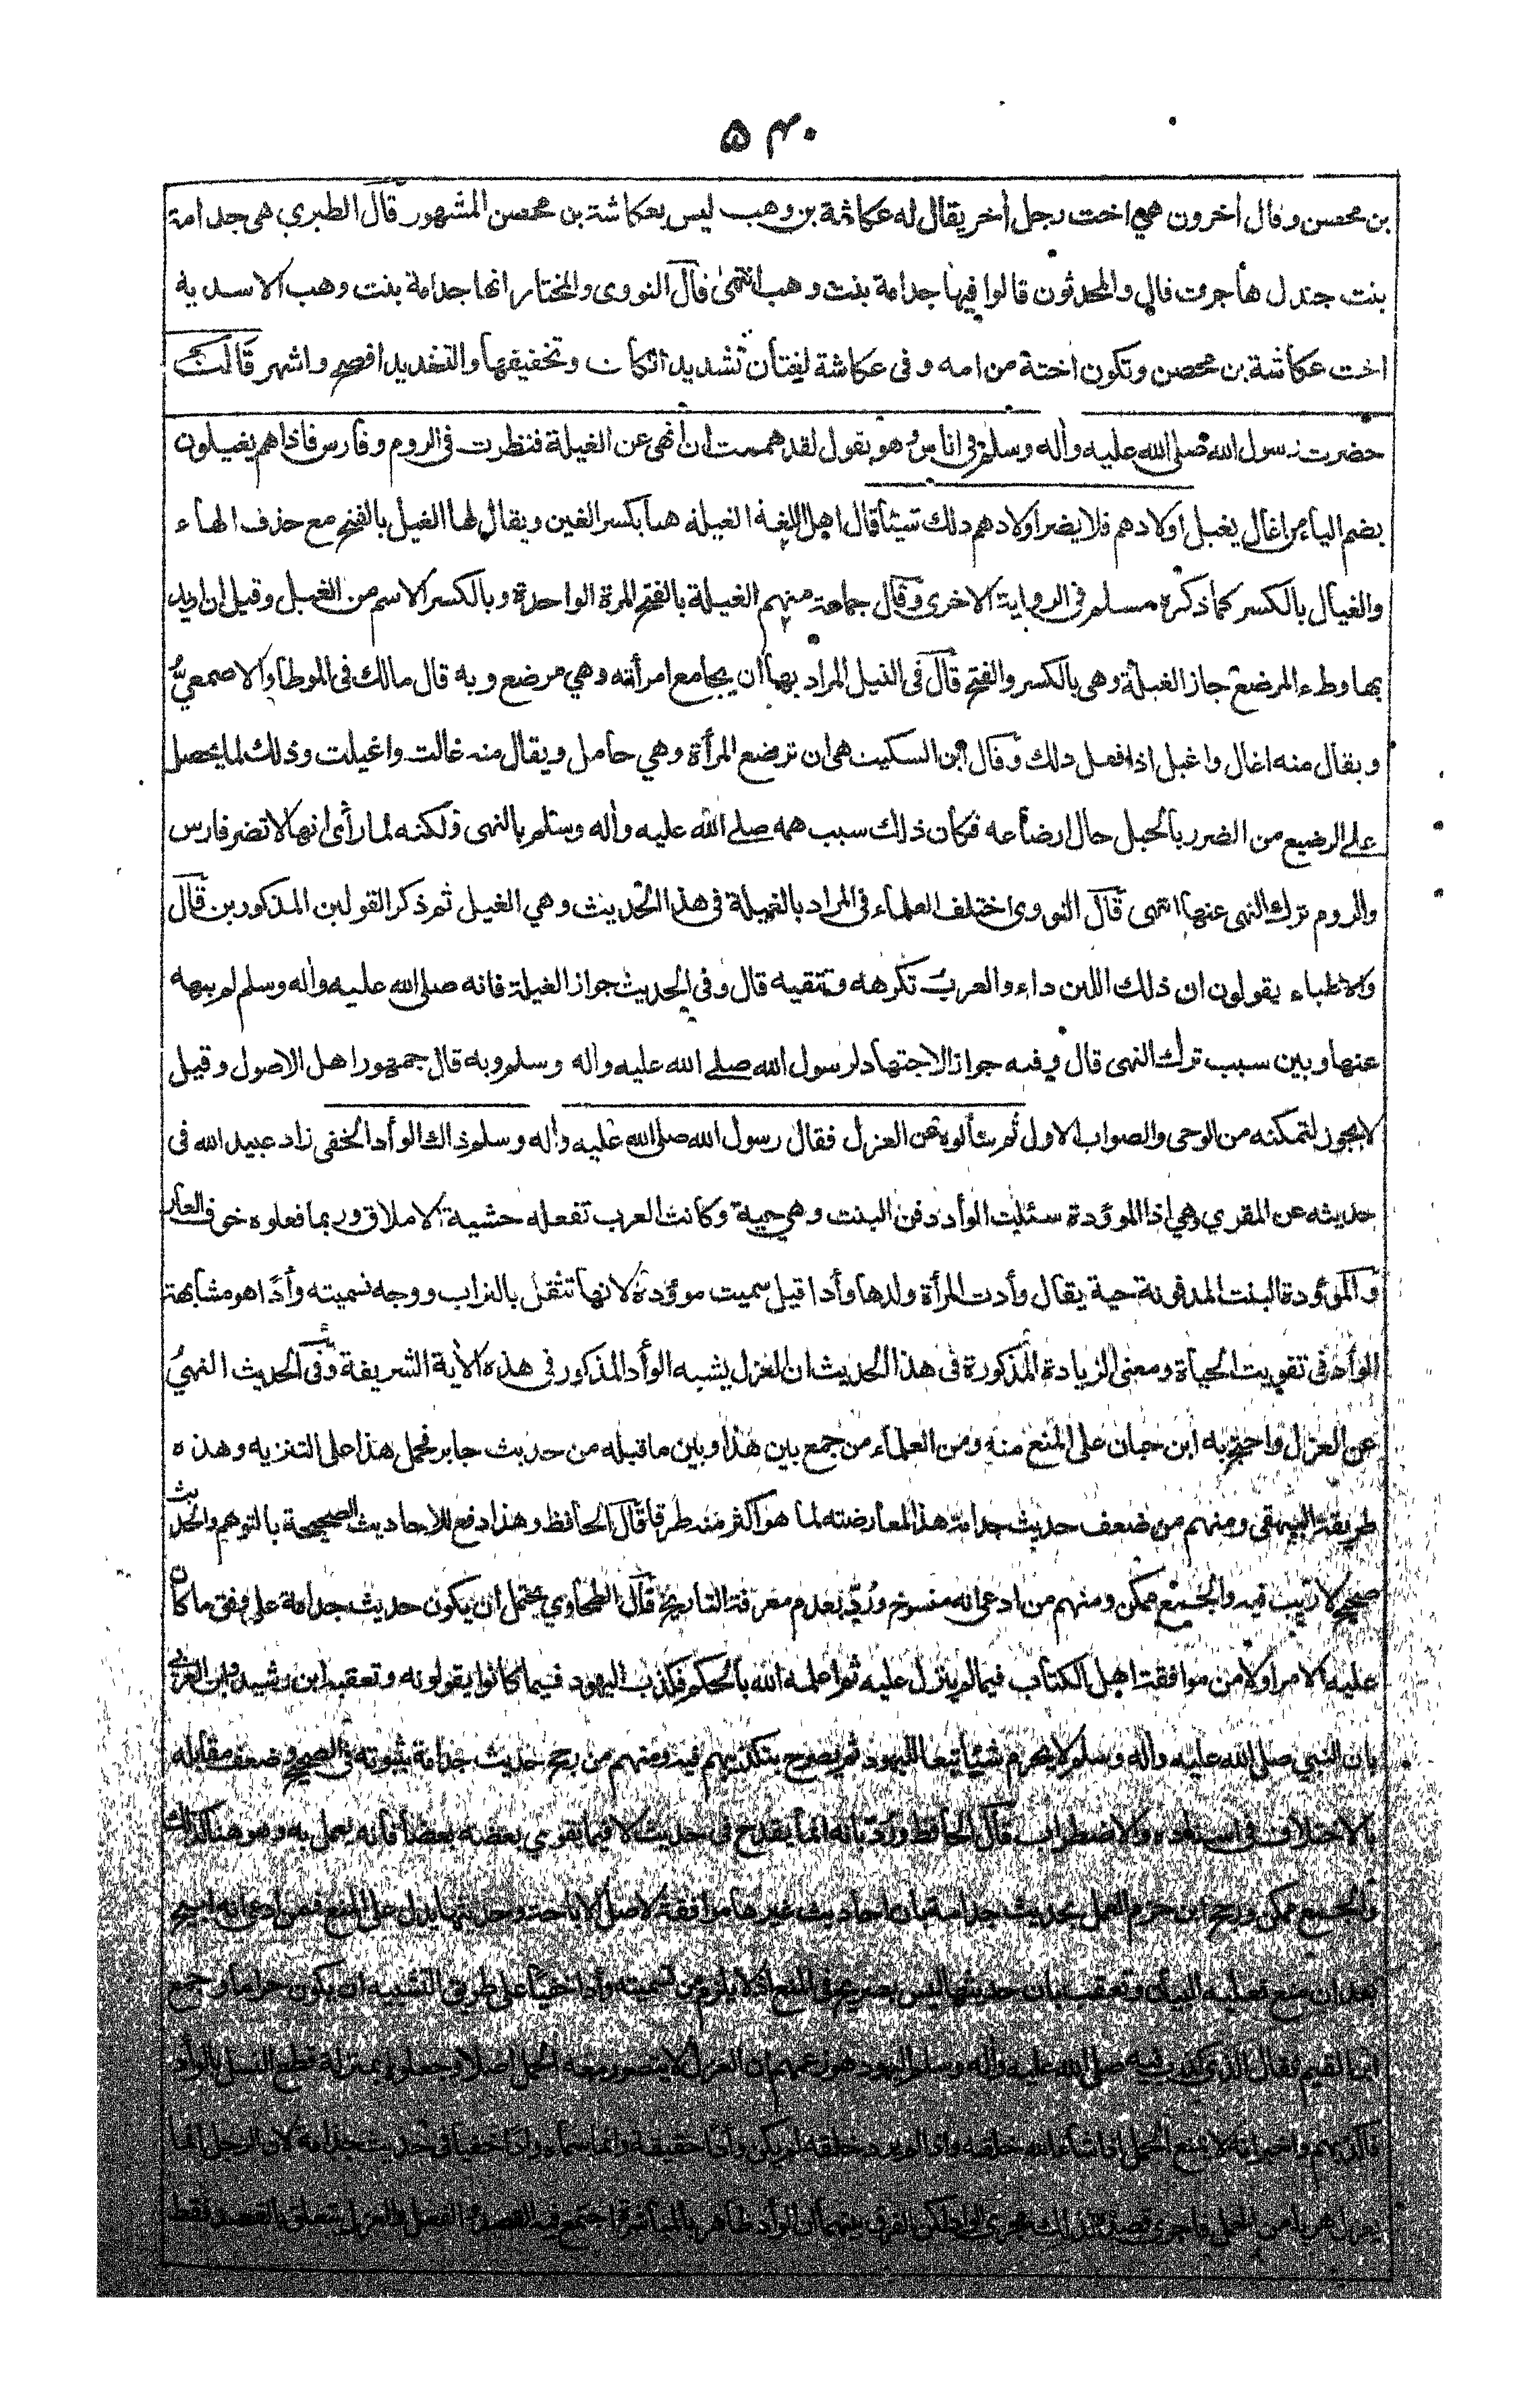 ٥٤٠
بن محصن وقال أخرون هي اخت رجل أخر يقال له عكاشة بن وهب ليس بعكاشة بن محصن المشهور قال الطبري هي جدامة
بنت جندل هاجرت قال والمحدثون قالوا فيها جدامة بنت وهب انتهى قال النووي والمختار انها جدامة بنت وهب الاسدية
اخت عكاشة بن محصن وتكون اخته من امه وفي عكاشة لغتان تشديد الكاف وتخفيفها والتشديد افصح واشهر قالت
حضرت رسول الله صلى الله عليه وأله وسلم في اناس وهو يقول لقد هممت ان أنهى عن الغيلة فنظرت في الروم وفارس فاذا هم يغيلون
بضم الياء من اغال يغيل اولادهم فلا يضر اولادهم ذلك شيئا قال اهل اللغة الغيلة هنا بكسر الغين ويقال لها الغيل بالفتح مع حذف الهاء
والغيال بالكسر كما ذكره مسلم في الرواية الاخرى وقال جماعة منهم الغيلة بالفتح المرة الواحدة وبالكسر الاسم من الغيل وقيل ان اريد
بها وطء المرضع جاز الغيلة وهي بالكسر والفتح قال في النيل المراد بها ان يجامع امرأته وهي مرضع وبه قال مالك في الموطأ والاصمعي
ويقال منه اغال واغيل اذا فعل ذلك وقال ابن السكيت هي ان ترضع المرأة وهي حامل ويقال منه غالت واغيلت وذلك لما يحصل
على الرضيع من الضرر بالحبل حال ارضاعه فكان ذلك سبب همه صلى الله عليه وأله وسلم بالنهى ولكنه لما رأى انها لا تضر فارس
والروم ترك النهى عنها انتهى قال النووي اختلف العلماء في المراد بالغيلة في هذا الحديث وهي الغيل ثم ذكر القولين المذكورين قال
والاطباء يقولون ان ذلك اللبن داء والعرب تكرهه وتتقيه قال وفي الحديث جواز الغيلة فانه صلى الله عليه وأله وسلم لم ينهه
عنها وبين سبب ترك النهى قال وفيه جواز الاجتهاد لرسول الله صلى الله عليه وأله وسلم وبه قال جمهور اهل الاصول وقيل
لا يجوز لتمكنه من الوحى والصواب الاول ثم سألوه عن العزل فقال رسول الله صلى الله عليه وأله وسلم ذاك الوأد الخفي زاد عبيد الله في
حديثه عن المقري وهي اذا الموؤدة سئلت الوأد دفن البنت وهي حية وكانت العرب تفعله خشية الاملاق وربما فعلوه خوف العار
والموؤدة البنت المدفونة حية يقال وأدت المرأة ولدها وأدا قيل سميت موؤدة لانها تثقل بالتراب ووجه تسميته وأدا هو مشابهته
الوأد في تفويت الحياة ومعنى الزيادة المذكورة في هذا الحديث ان العزل يشبه الوأد المذكور في هذه الأية الشريفة وفي الحديث النهي
عن العزل واحتج به ابن حبان على المنع منه ومن العلماء من جمع بين هذا وبين ما قبله من حديث جابر فحمل هذا على التنزيه وهذه
طريقة البيهقي ومنهم من ضعف حديث جدامة هذا لمعارضته لما هو اكثر منه طرقا قال الحافظ وهذا دفع للاحاديث الصحيحة بالتوهم والحديث
صحيح لا ريب فيه والجمع ممكن ومنهم من ادعى انه منسوخ ورد بعدم معرفة التاريخ قال الطحاوي يحتمل ان يكون حديث جدامة على وفق ما كان
عليه الامر اولا من موافقة اهل الكتاب فيما لم ينزل عليه ثم اعلمه الله بالحكم فكذب اليهود فيما كانوا يقولونه وتعقبه ابن رشيد وابن العربي
بان النبي صلى الله عليه وأله وسلم لا يحرم شيئا تبعا لليهود ثم يصرح بتكذيبهم فيه ومنهم من رجح حديث جدامة بثبوته في الصحيح وضعف مقابله
بالاختلاف في اسناده والاضطراب قال الحافظ ورد بانه انما يقدح في حديث لا فيما يقوي بعضه بعضا فانه يعمل به وهو هنا كذلك
والجمع ممكن ورجح ابن حزم العمل بحديث جدامة بان احاديث غيرها موافقة لاصل الاباحة وحديثها يدل على المنع فمن ادعى انه ابيح
بعد ان منع فعليه البيان وتعقب بان حديثها ليس بصريح في المنع اذ لا يلزم من تسميته وأدا خفيا على طريق التشبيه ان يكون حراما وجمع
ابن القيم فقال الذي كذب فيه صلى الله عليه وأله وسلم اليهود هو زعمهم ان العزل لا يتصور معه الحمل اصلا وجعلوه بمنزلة قطع النسل بالوأد
فاكذبهم واخبر انه لا يمنع الحمل اذا شاء الله خلقه واذا لم يرد خلقه لم يكن وأدا حقيقة وانما سماه وأدا خفيا في حديث جدامة لان الرجل انما
يعزل هربا من الحمل فاجرى قصده لذلك مجرى الوأد لكن الفرق بينهما ان الوأد ظاهر بالمباشرة اجتمع فيه القصد والفعل والعزل يتعلق بالقصد فقط